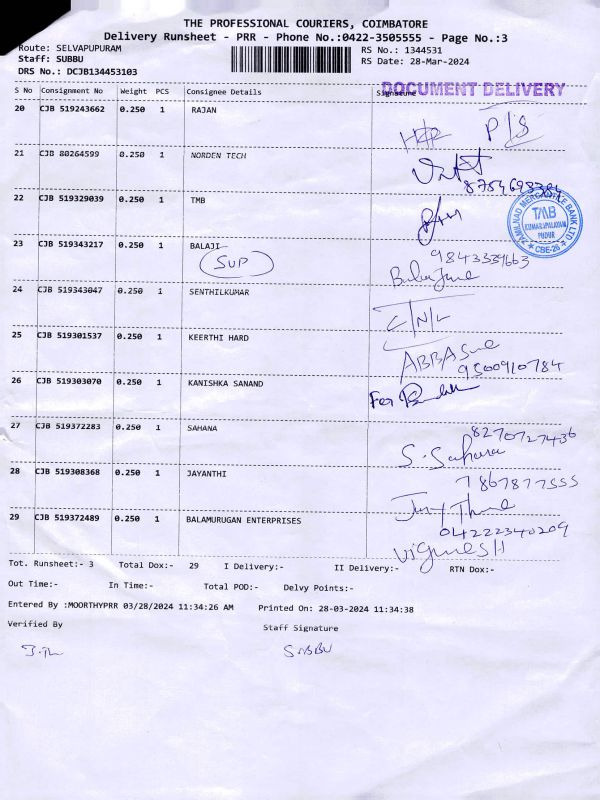 THE PROFESSIONAL COURIERS, COIMBATORE
Delivery Runsheet - PRR - Phone No.:0422-3505555 - Page No.:3
Route: SELVAPUPURAM
RS No.: 1344531
Staff: SUBBU
RS Date: 28-Mar-2024
DRS No.: DCJB134453103
DOCUMENT DELIVERY
S No Consignment No Weight PCS Consignee Details Signature
20 CJB 519243662 0.250 1 RAJAN
P/S
21 CJB 80264599 0.250 1 NORDEN TECH
22 CJB 519329039 0.250 1 TMB
TAMILNAD MERCANTILE BANK LTD
TMB
KUMARAPALAYAM
PUDUR
CBE-26
23 CJB 519343217 0.250 1 BALAJI
SUP
24 CJB 519343047 0.250 1 SENTHILKUMAR
C/N/L
25 CJB 519301537 0.250 1 KEERTHI HARD
9500910784
26 CJB 519303070 0.250 1 KANISHKA SANAND
For
27 CJB 519372283 0.250 1 SAHANA
8270727436
S. Sahana
28 CJB 519308368 0.250 1 JAYANTHI
7867877555
29 CJB 519372489 0.250 1 BALAMURUGAN ENTERPRISES
04222340209
VigneSH
Tot. Runsheet:- 3 Total Dox:- 29 I Delivery:- II Delivery:- RTN Dox:-
Out Time:- In Time:- Total POD:- Delvy Points:-
Entered By :MOORTHYPRR 03/28/2024 11:34:26 AM Printed On: 28-03-2024 11:34:38
Verified By Staff Signature
SUBBU